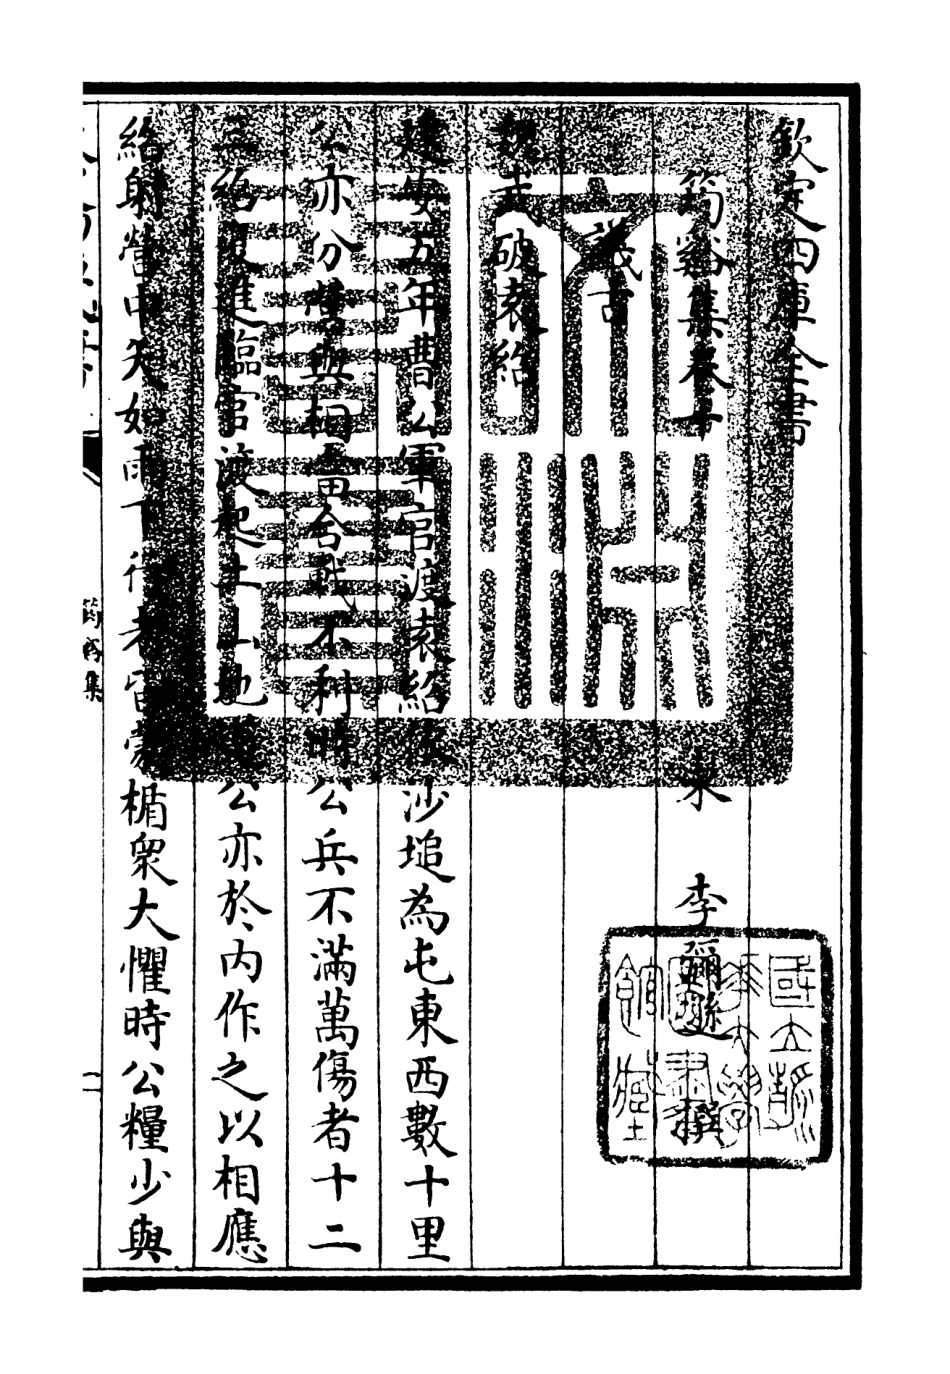 欽定四庫全書
筠谿集卷十
宋 李彌遜 撰
議古
魏武破袁紹
建安五年曹公軍官渡袁紹依沙塠為屯東西數十里
公亦分營與相當合戰不利時公兵不滿萬傷者十二
三紹復進臨官渡起土山地道公亦於內作之以相應
紹射營中矢如雨下行者皆蒙楯衆大懼時公糧少與
筠谿集
國立清華大學圖書館藏